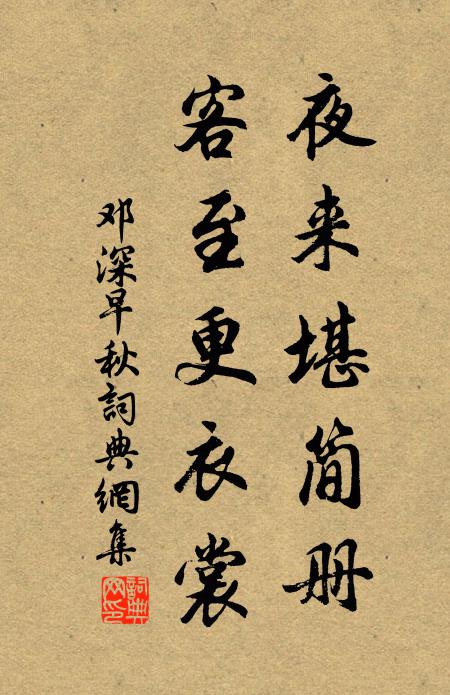 夜来堪简册
客至更衣裳
邓深早秋詞典網集
詞典网印